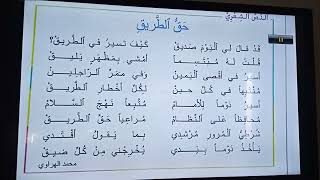 الدَّرْسُ الشِّعْرِيُّ
حَقُّ ٱلطَّرِيقِ
قَدْ قالَ لي ٱلْيَوْمَ صَديقْ كَيْفَ تَسيرُ في ٱلطَّريقْ؟
قُلْتُ لَهُ مُبْتَسِمًا أَمْشي بِمَظْهَرٍ يَليقْ
أَسيرُ في أَقْصى ٱلْيَمينْ وَفي مَمَرِّ ٱلرّاجِلينْ
مُنْتَبِهًا في كُلِّ حينْ لِكُلِّ أَخْطارِ ٱلطَّريقْ
أَسيرُ دَوْمًا لِلْأَمامْ مُتَّبِعًا نَهْجَ ٱلسَّلامْ
مُحافِظًا عَلى ٱلنِّظامْ مُراعِيًا حَقَّ ٱلطَّريقْ
شُرْطِيُّ ٱلْمُرورِ مُرْشِدي بِما يَقولُ أَقْتَدي
يَأْخُذُ دَوْمًا بِيَدي يُخْرِجُني مِنْ كُلِّ ضيقْ
محمد الهراوي